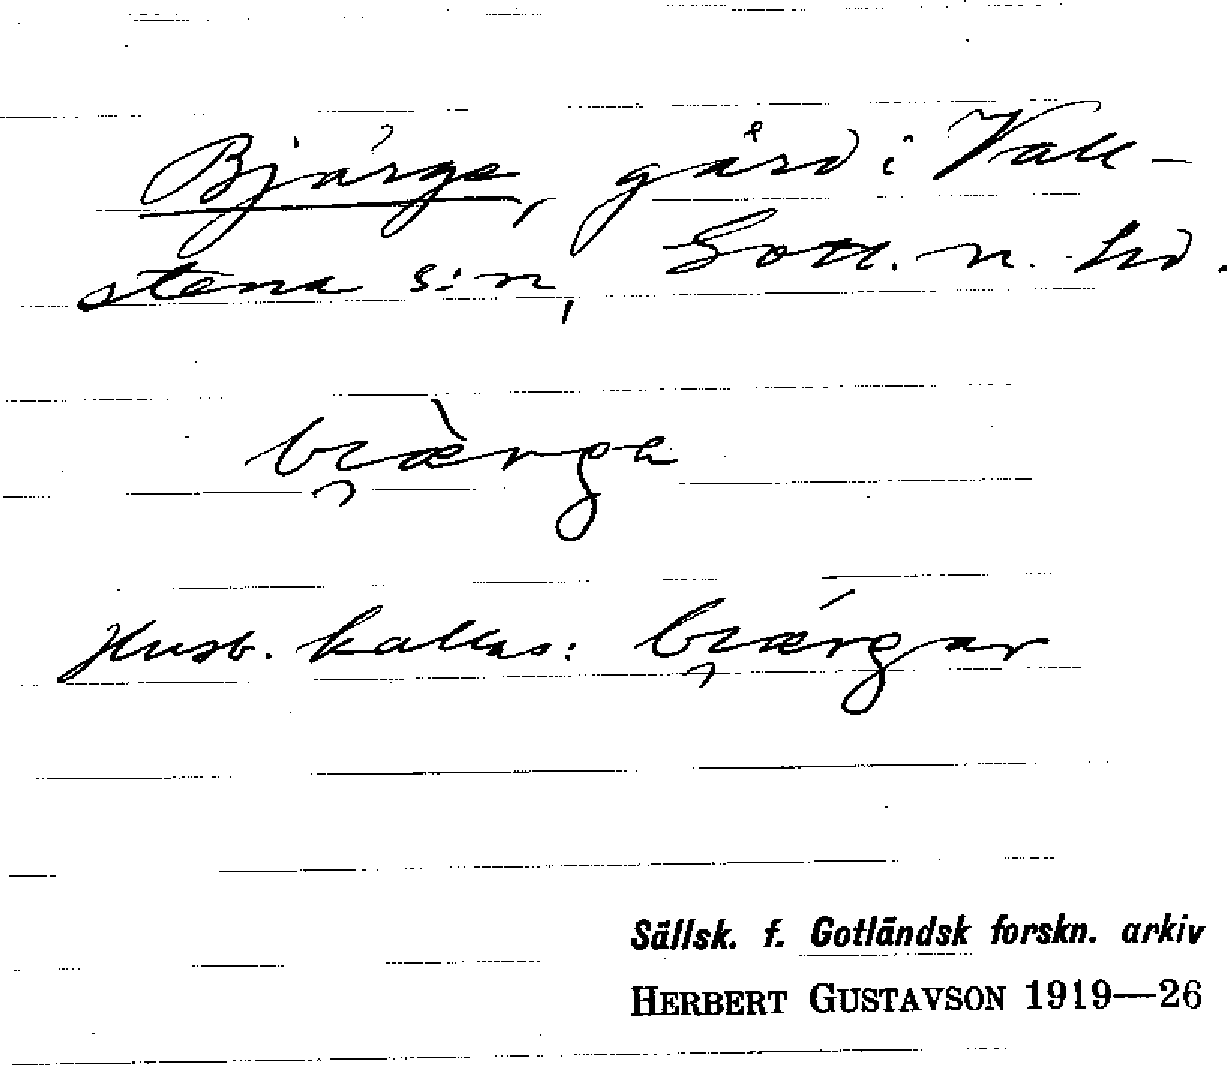 Bjärge, gård i Vall-
stena s:n, Gotl. n. hd.
bi̯æ̀rgɐ
Husb. kallas: bi̯ǽrgar
Sällsk. f. Gotländsk forskn. arkiv
HERBERT GUSTAVSON 1919—26